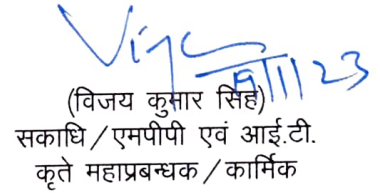 Vijay
15/11/23
(विजय कुमार सिंह)
सकाधि / एमपीपी एवं आई.टी.
कृते महाप्रबन्धक / कार्मिक